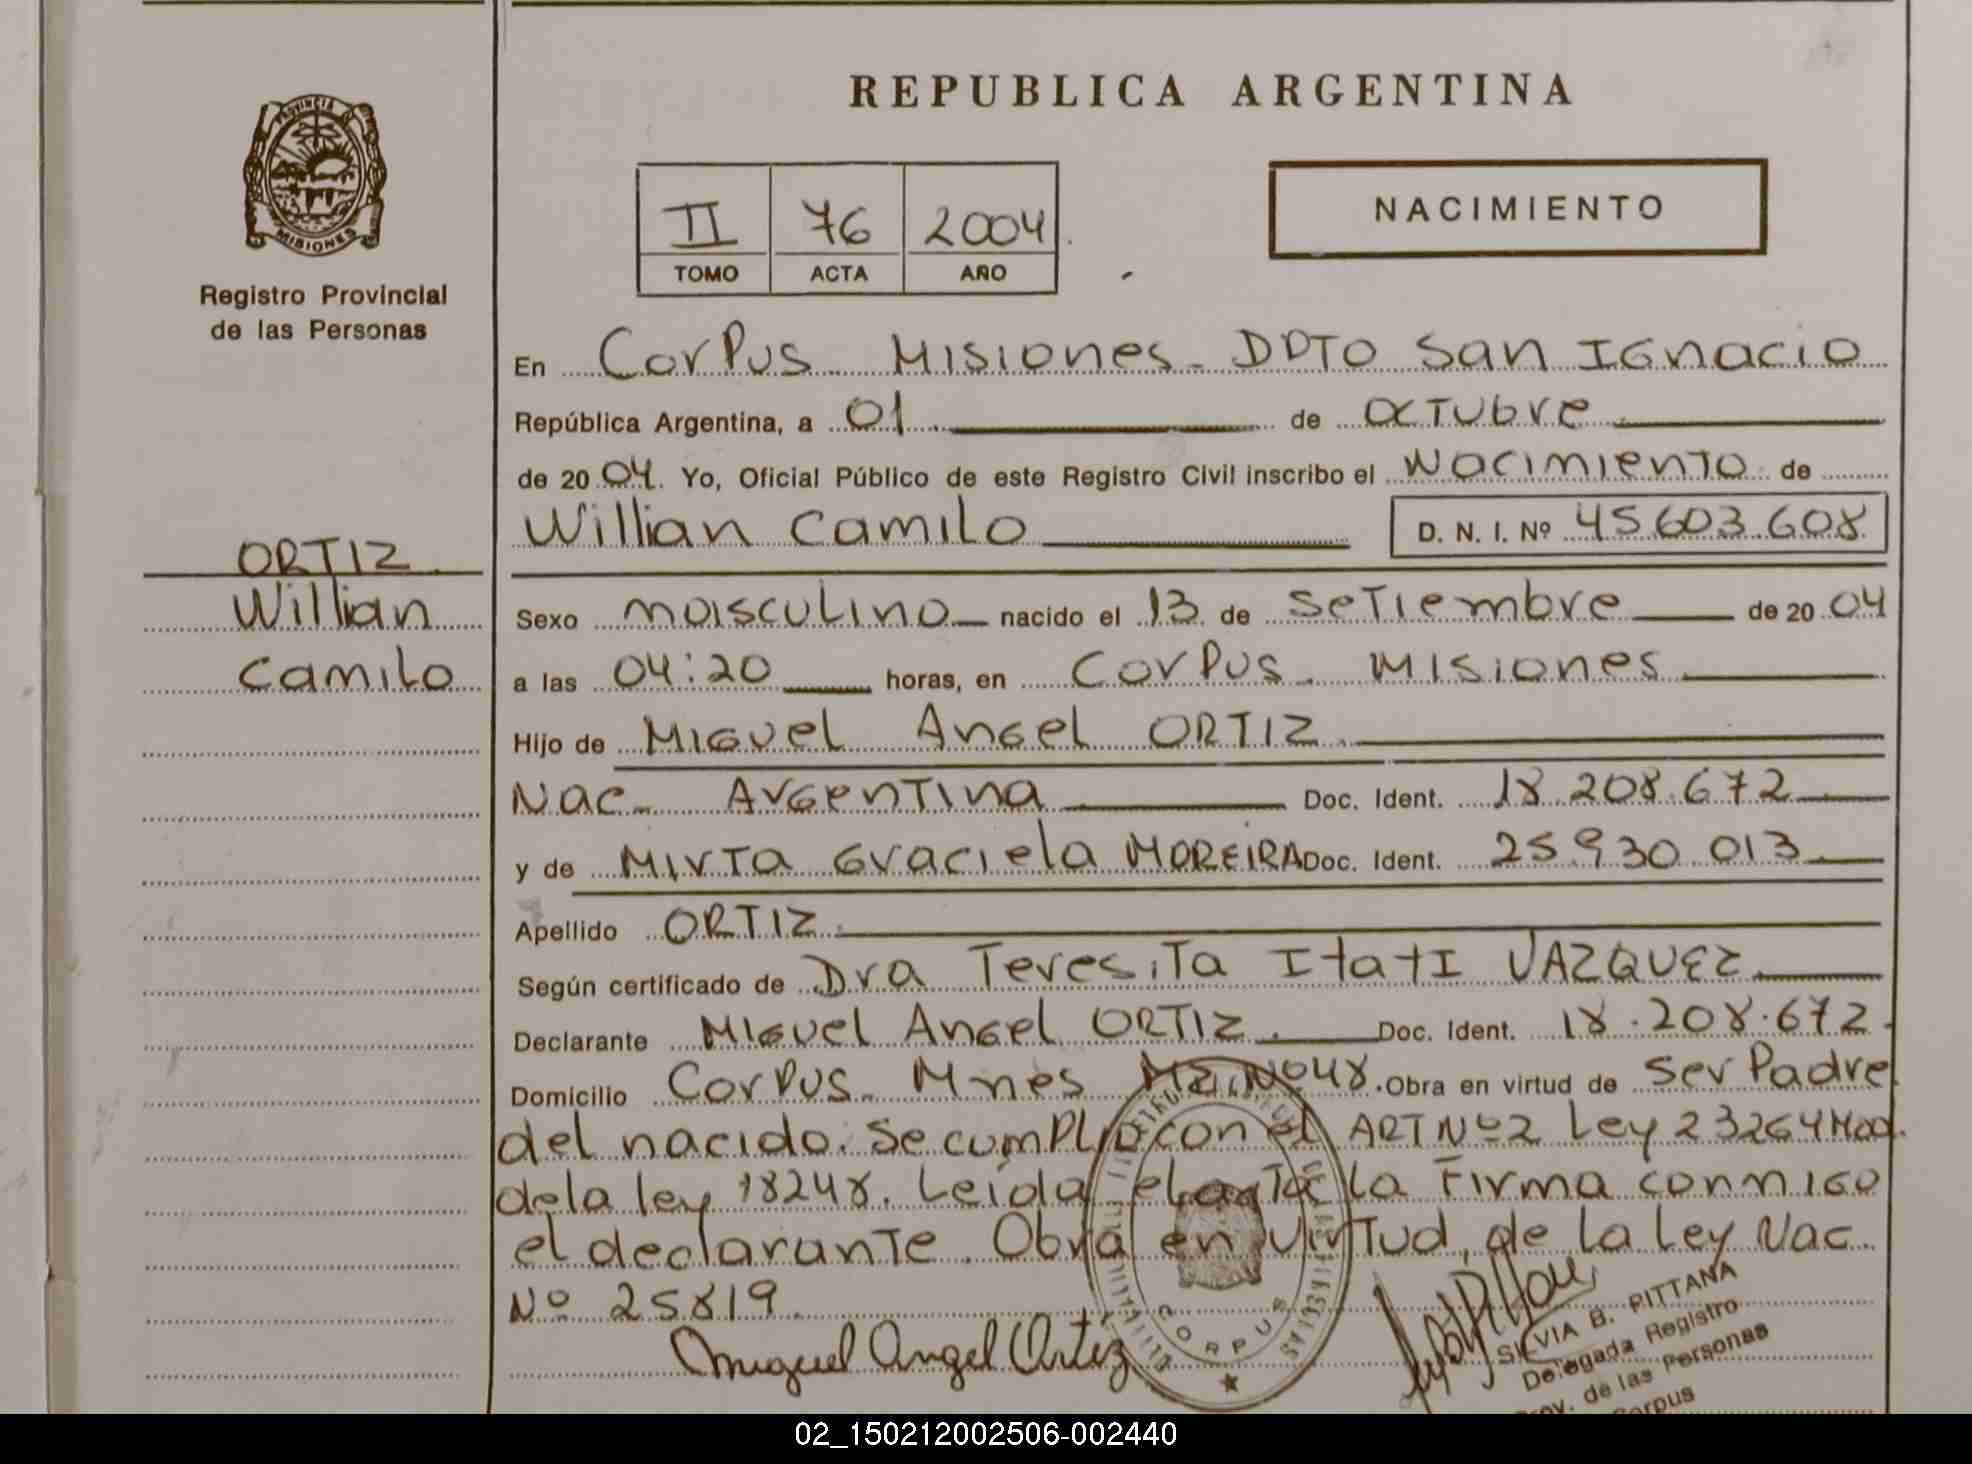 REPUBLICA ARGENTINA
PROVINCIA
MISIONES
Registro Provincial
de las Personas
II 76 2004
TOMO ACTA AÑO
NACIMIENTO
En Corpus Misiones - DPTO San Ignacio
República Argentina, a 01 de octubre
de 2004. Yo, Oficial Público de este Registro Civil inscribo el Nacimiento de
Willian Camilo D. N. I. Nº 45.603.608
ORTIZ
Willian
Camilo
Sexo masculino nacido el 13 de Setiembre de 2004
a las 04:20 horas, en Corpus - Misiones
Hijo de Miguel Angel ORTIZ
Nac- Argentina Doc. Ident. 18.208.672
y de Mirta Graciela MOREIRA Doc. Ident. 25 930 013
Apellido ORTIZ
Según certificado de Dra Teresita Itati VAZQUEZ
Declarante Miguel Angel ORTIZ. Doc. Ident. 18.208.672.
Domicilio Corpus - Mnes Nº 48. Obra en virtud de Ser Padre
del nacido. Se cumplio con el ART Nº 2 Ley 23264 Mod.
de la ley 18248. Leida el acta la Firma conmigo
el declarante. Obra en virtud de la Ley Nac.
Nº 25819.
Miguel Angel Ortiz
CORPUS
SILVIA B. PITTANA
Delegada Registro
Prov. de las Personas
Corpus
02_150212002506-002440